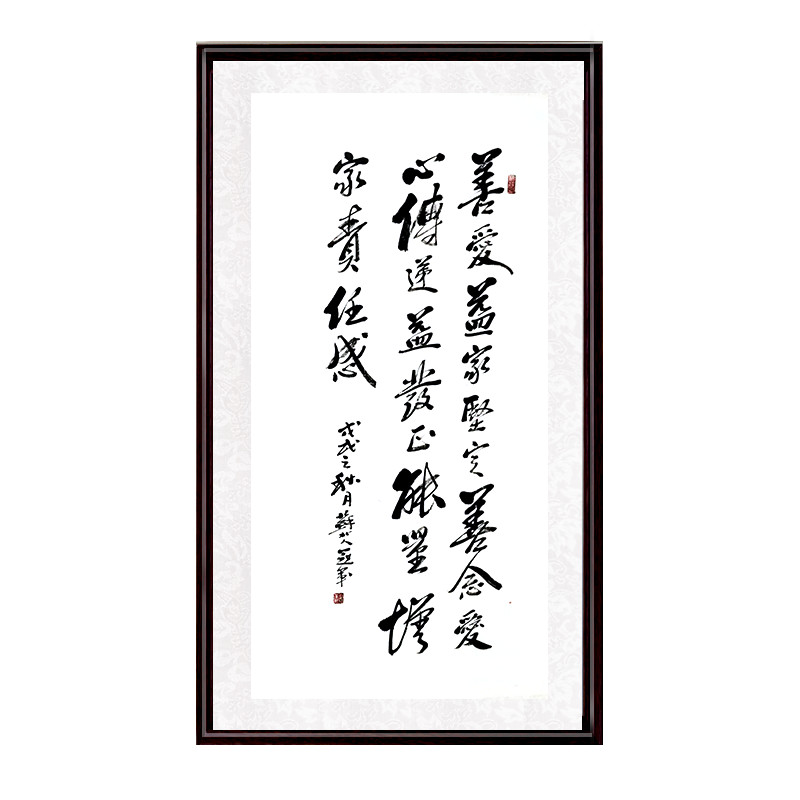 善愛益家堅定善念愛
心傳遞益發正能量增
家責任感
戊戌之秋月